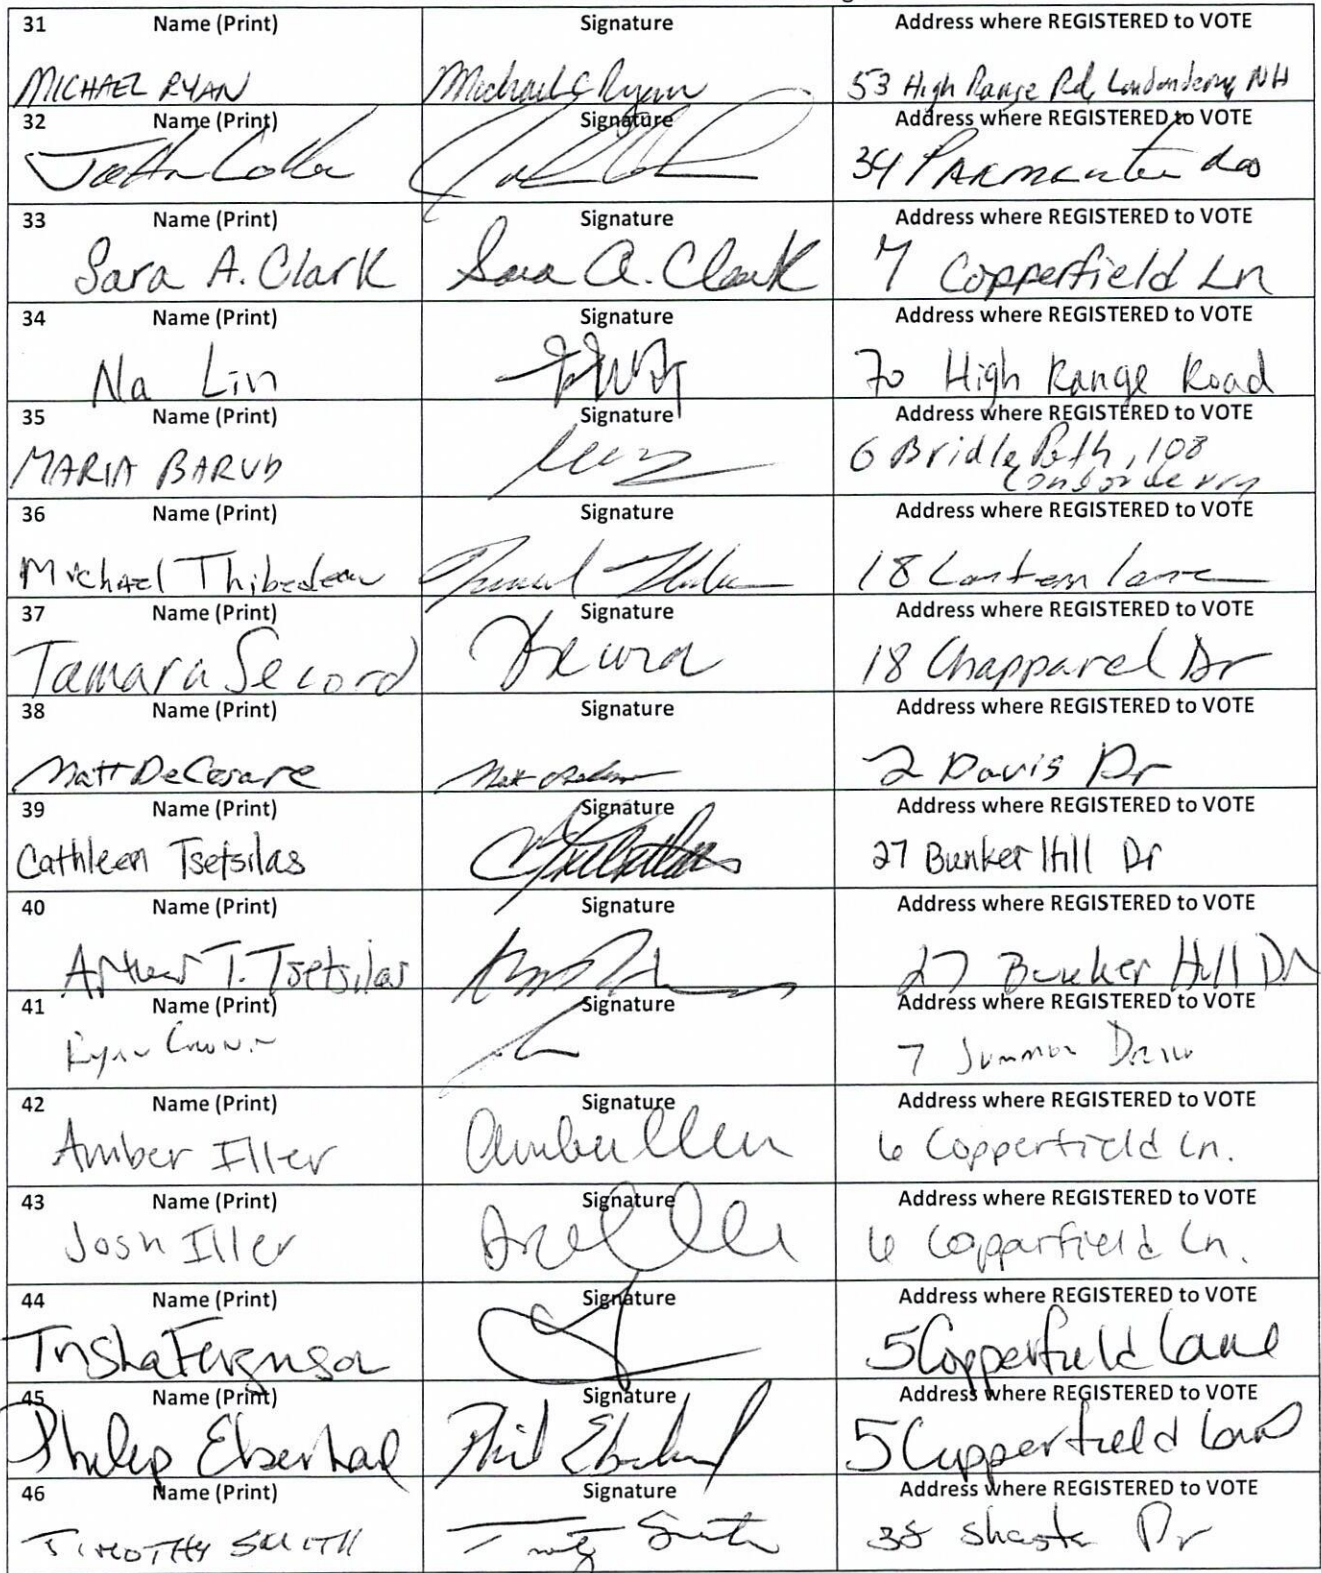 31 Name (Print) Signature Address where REGISTERED to VOTE
MICHAEL RYAN Michael C Ryan 53 High Range Rd, Londonderry, NH
32 Name (Print) Signature Address where REGISTERED to VOTE
34
33 Name (Print) Signature Address where REGISTERED to VOTE
Sara A. Clark Sara A. Clark 7 Copperfield Ln
34 Name (Print) Signature Address where REGISTERED to VOTE
Na Lin 70 High Range Road
35 Name (Print) Signature Address where REGISTERED to VOTE
MARIA BARUD 6 Bridle Path, 108
Londonderry
36 Name (Print) Signature Address where REGISTERED to VOTE
Michael Thibedeau 18 Lantern lane
37 Name (Print) Signature Address where REGISTERED to VOTE
Tamara Secord 18 Chapparel Dr
38 Name (Print) Signature Address where REGISTERED to VOTE
Matt DeCesare 2 Davis Dr
39 Name (Print) Signature Address where REGISTERED to VOTE
Cathleen Tsetsilas 27 Bunker Hill Dr
40 Name (Print) Signature Address where REGISTERED to VOTE
Arthur T. Tsetsilas 27 Bunker Hill Dr
41 Name (Print) Signature Address where REGISTERED to VOTE
Ryan 7 Drive
42 Name (Print) Signature Address where REGISTERED to VOTE
Amber Iller Amber Iller 6 Copperfield Ln.
43 Name (Print) Signature Address where REGISTERED to VOTE
Josh Iller 6 Copparfield Ln.
44 Name (Print) Signature Address where REGISTERED to VOTE
Trisha Ferguson 5 Copperfield Lane
45 Name (Print) Signature Address where REGISTERED to VOTE
Philip Eberhad Phil 5 Copperfield Lane
46 Name (Print) Signature Address where REGISTERED to VOTE
TIMOTHY SMITH Smith 38 Shasta Dr